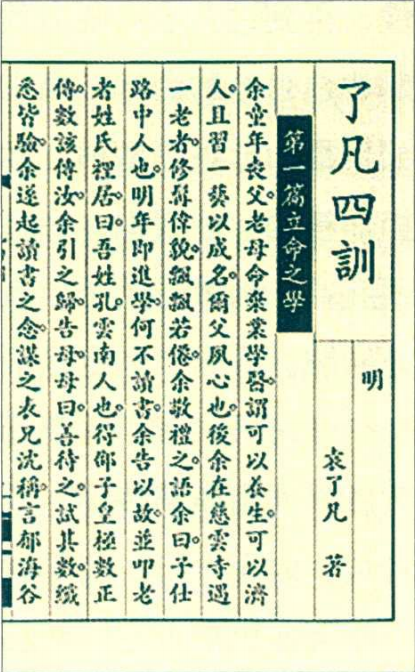 了凡四訓
明
袁了凡 著
第一篇立命之學
余童年喪父。老母命棄業學醫。謂可以養生。可以濟
人。且習一藝以成名。爾父夙心也。後余在慈雲寺遇
一老者。修髯偉貌。飄飄若僊。余敬禮之。語余曰。子仕
路中人也。明年即進學。何不讀書。余告以故。並叩老
者姓氏裡居。曰。吾姓孔。雲南人也。得邵子皇極數正
傳。數該傳汝。余引之歸。告母。母曰。善待之。試其數。纖
悉皆驗。余遂起讀書之念。謀之表兄沈稱。言郁海谷